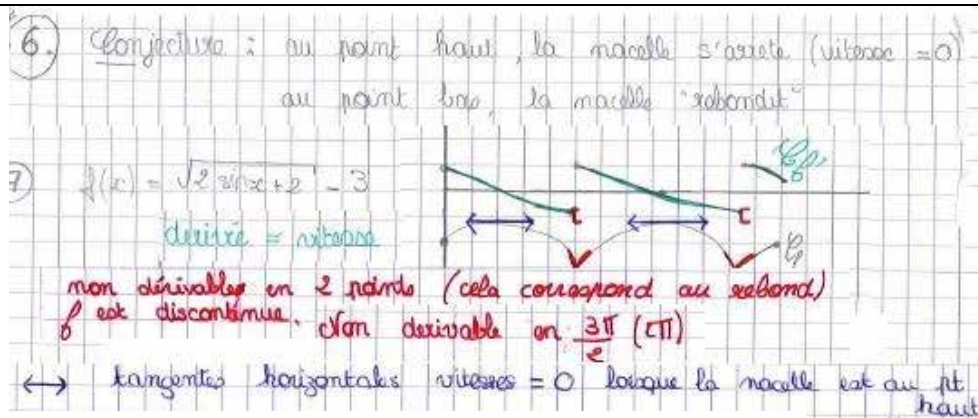 6.) Conjecture : au point haut, la nacelle s'arrete (vitesse = 0)
au point bas, la nacelle "rebondit"
7) f(x) = √2 sin x + 2 - 3
Cf'
dérivé = vitesse
Cf
non dérivables en 2 points (cela correspond au rebond)
f est discontinue. Non derivable en 3π/2 (2π)
↔ tangentes horizontales vitesses = 0 lorsque la nacelle est au pt
haut